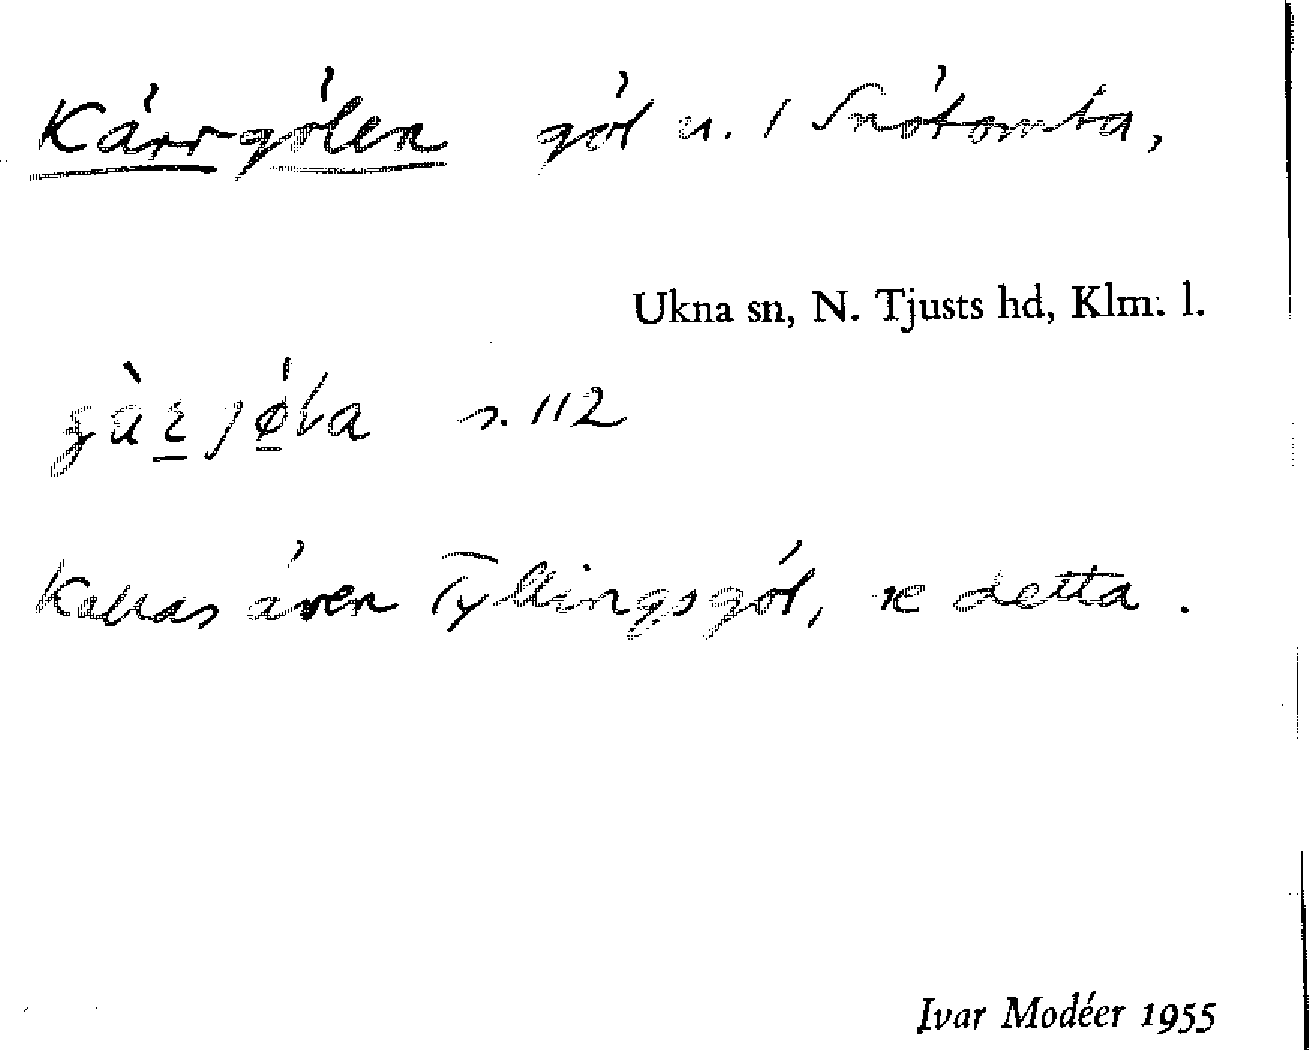 Kärrgölen göl u. / Snötomta,
Ukna sn, N. Tjusts hd, Klm. l.
s. 112
Kallas även Tyllingsgöl, se detta.
Ivar Modéer 1955